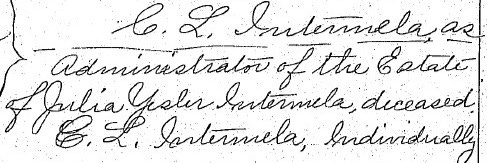 C. L. Intermela, as
Administrator of the Estate
of Julia Yesler Intermela, deceased.
C. L. Intermela, Individually